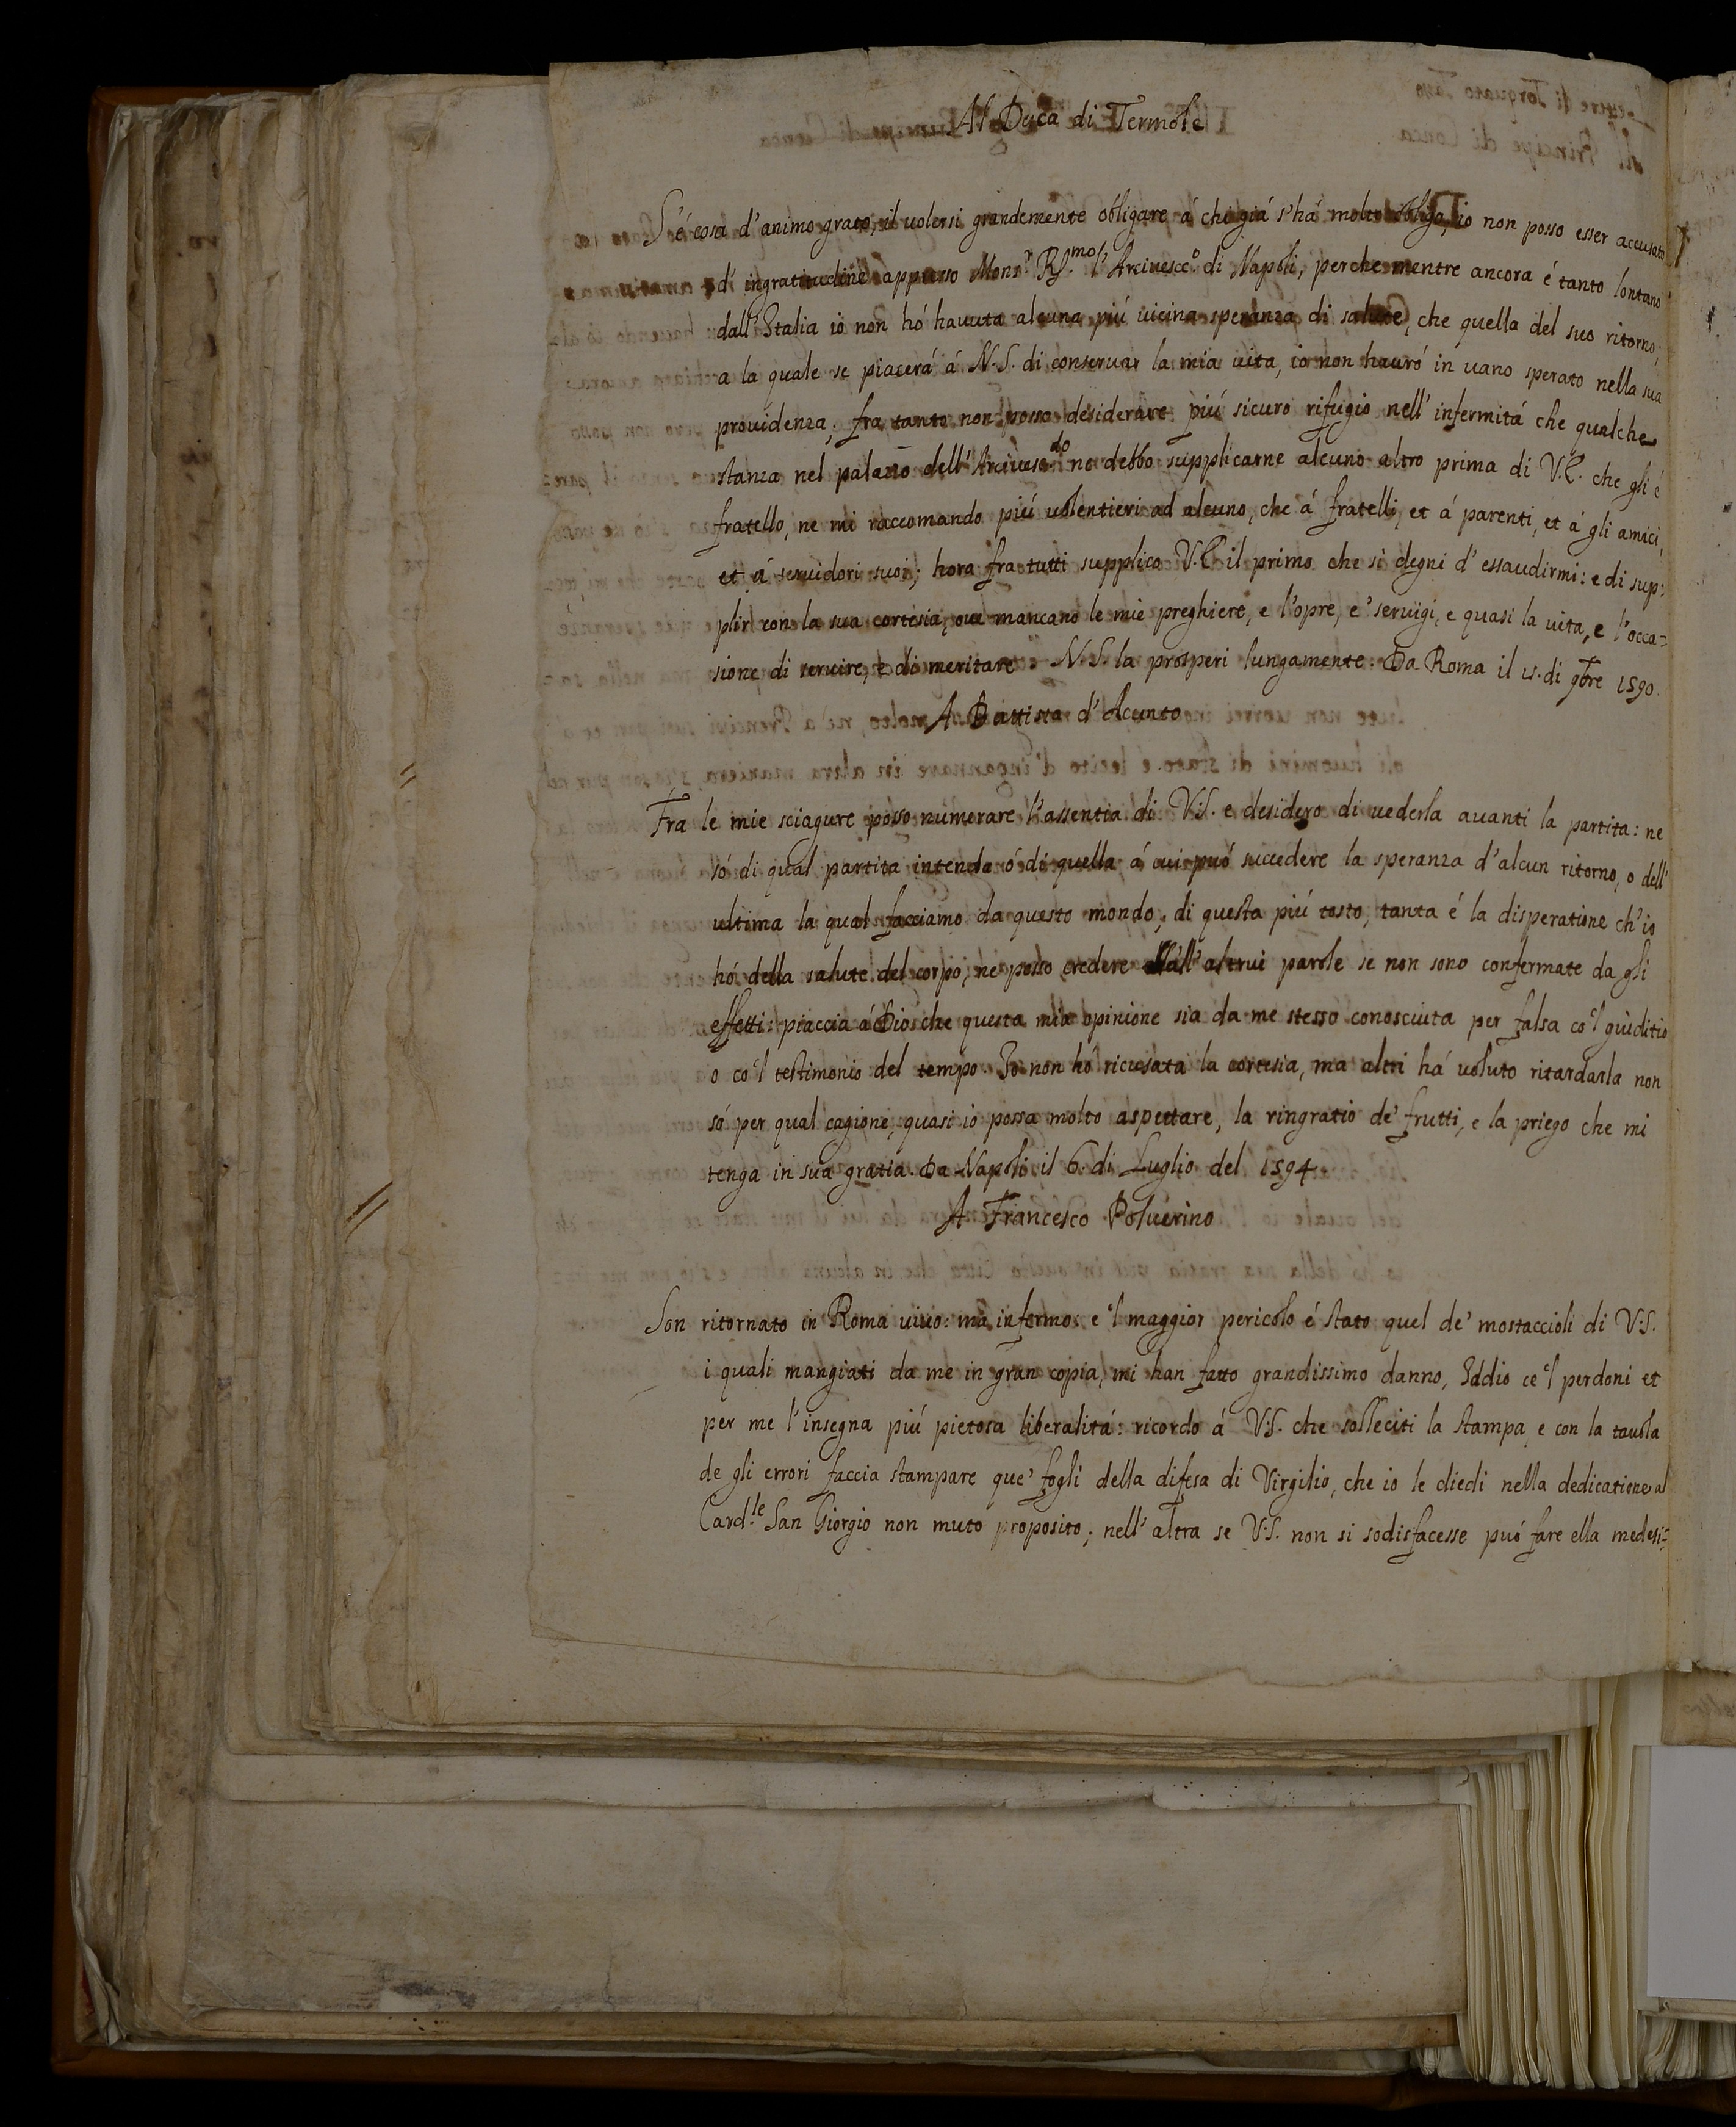 Al Duca di Termole
S'é cosa d'animo grato, il uolersi grandemente obligare á chi giá s'há molto obligo, io non posso esser accusato
d'ingratitudine appresso Mons.r R.mo l'Arciuesc.o di Napoli, perche mentre ancora é tanto lontano
dall'Italia io non hó hauuta alcuna piú uicina speranza di salute, che quella del suo ritorno;
a la quale se piacerá á N.S. di conseruar la mia uita, io non hauró in uano sperato nella sua
prouidenza, fra tanto non posso desiderare piú sicuro rifugio nell'infermitá che qualche
stanza nel palazzo dell'Arciuesc.do ne debbo supplicarne alcuno altro prima di V.E. che gli é
fratello, ne mi raccomando piú uolentieri ad alcuno, che á fratelli, et á parenti, et á gli amici,
et á seruidori suoi; hora fra tutti supplico V.E. il primo che si degni d'essaudirmi: e di sup:
plir con la sua cortesia, oue mancano le mie preghiere, e l'opre, e' seruigi, e quasi la uita, e l'occa=
sione di seruire, e di meritare. N.S. la prosperi lungamente. Da Roma il 15. di 9bre 1590.
A Battista d'Acunto
Fra le mie sciagure posso numerare l'assentia di V.S. e desidero di uederla auanti la partita: ne
só di qual partita intenda ó di quella á cui puó succedere la speranza d'alcun ritorno, o dell'
ultima la qual facciamo da questo mondo, di questa piú tosto, tanta é la disperatione ch'io
hó della salute del corpo, ne posso credere all'altrui parole se non sono confermate da gli
effetti: piaccia á Dio che questa mia opinione sia da me stesso conosciuta per falsa co'l giuditio
o co'l testimonio del tempo. Io non hó ricusata la cortesia, ma altri há uoluto ritardarla non
só per qual cagione, quasi io possa molto aspettare, la ringratio de' frutti, e la priego che mi
tenga in sua gratia. Da Napoli il 6. di Luglio del 1594
A Francesco Poluerino
Son ritornato in Roma uiuo: ma infermo: e 'l maggior pericolo é stato quel de' mostaccioli di V.S.
i quali mangiati da me in gran copia, mi han fatto grandissimo danno, Iddio ce'l perdoni et
per me l'insegna piú pietosa liberalitá: ricordo á V.S. che solleciti la stampa, e con la tauola
de gli errori faccia stampare que' fogli della difesa di Virgilio, che io le diedi nella dedicatione al
Card.le San Giorgio non muto proposito; nell'altra se V.S. non si sodisfacesse puó fare ella medesi=